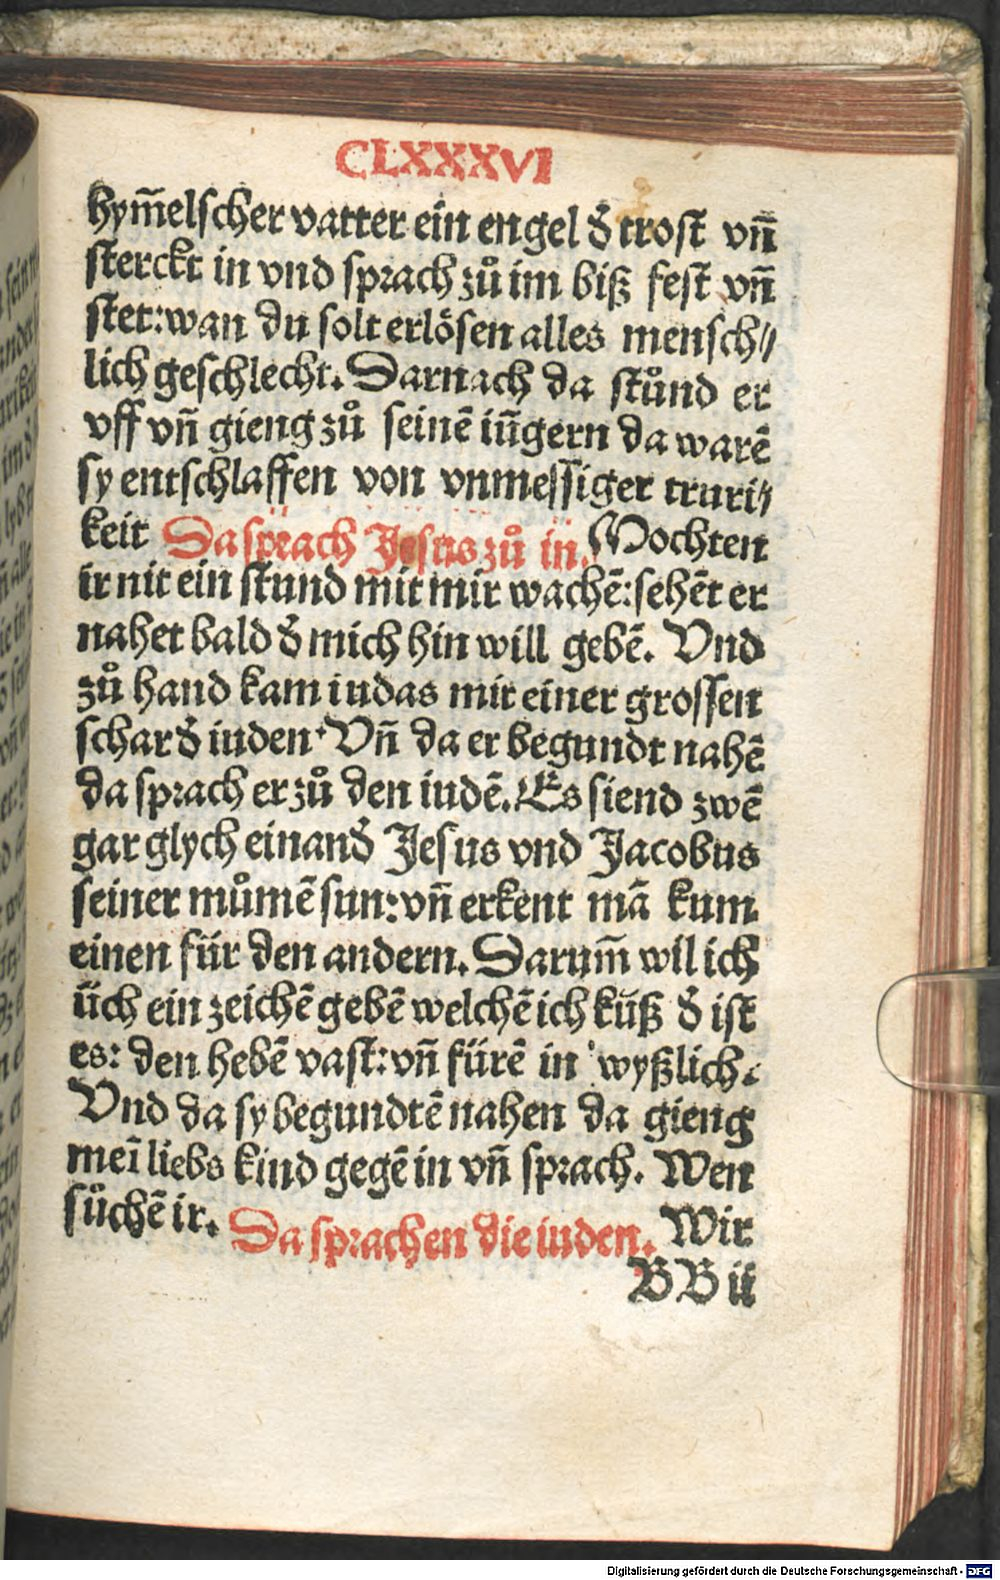 CLXXXVI
hym̃elscher vatter ein engel d̕ trost vñ
sterckt in vnd sprach zů im biß fest vñ
stet: wan du solt erlösen alles mensch⸗
lich geschlecht. Darnach da stůnd er
vff vñ gieng zů seinē iüngern da warē
sy entschlaffen von vnmessiger truri⸗
keit Da sprach Jesus zů in. Mochten
ir nit ein stund mit mir wachē: sehēt er
nahet bald d̕ mich hin will gebē. Vnd
zů hand kam iudas mit einer grossen
schar d̕ iuden. Vñ da er begundt nahē
da sprach er zů den iudē. Es siend zwē
gar glych einand̕ Jesus vnd Jacobus
seiner můmē sun: vñ erkent mā kum
einen für den andern. Darum̃ wil ich
üch ein zeichē gebē welchē ich küß d̕ ist
es: den hebē vast: vñ fürē in wyßlich.
Vnd da sy begundtē nahen da gieng
meī liebs kind gegē in vñ sprach. Wen
sůchē ir. Da sprachen die iuden. Wir
BB ii
Digitalisierung gefördert durch die Deutsche Forschungsgemeinschaft - DFG